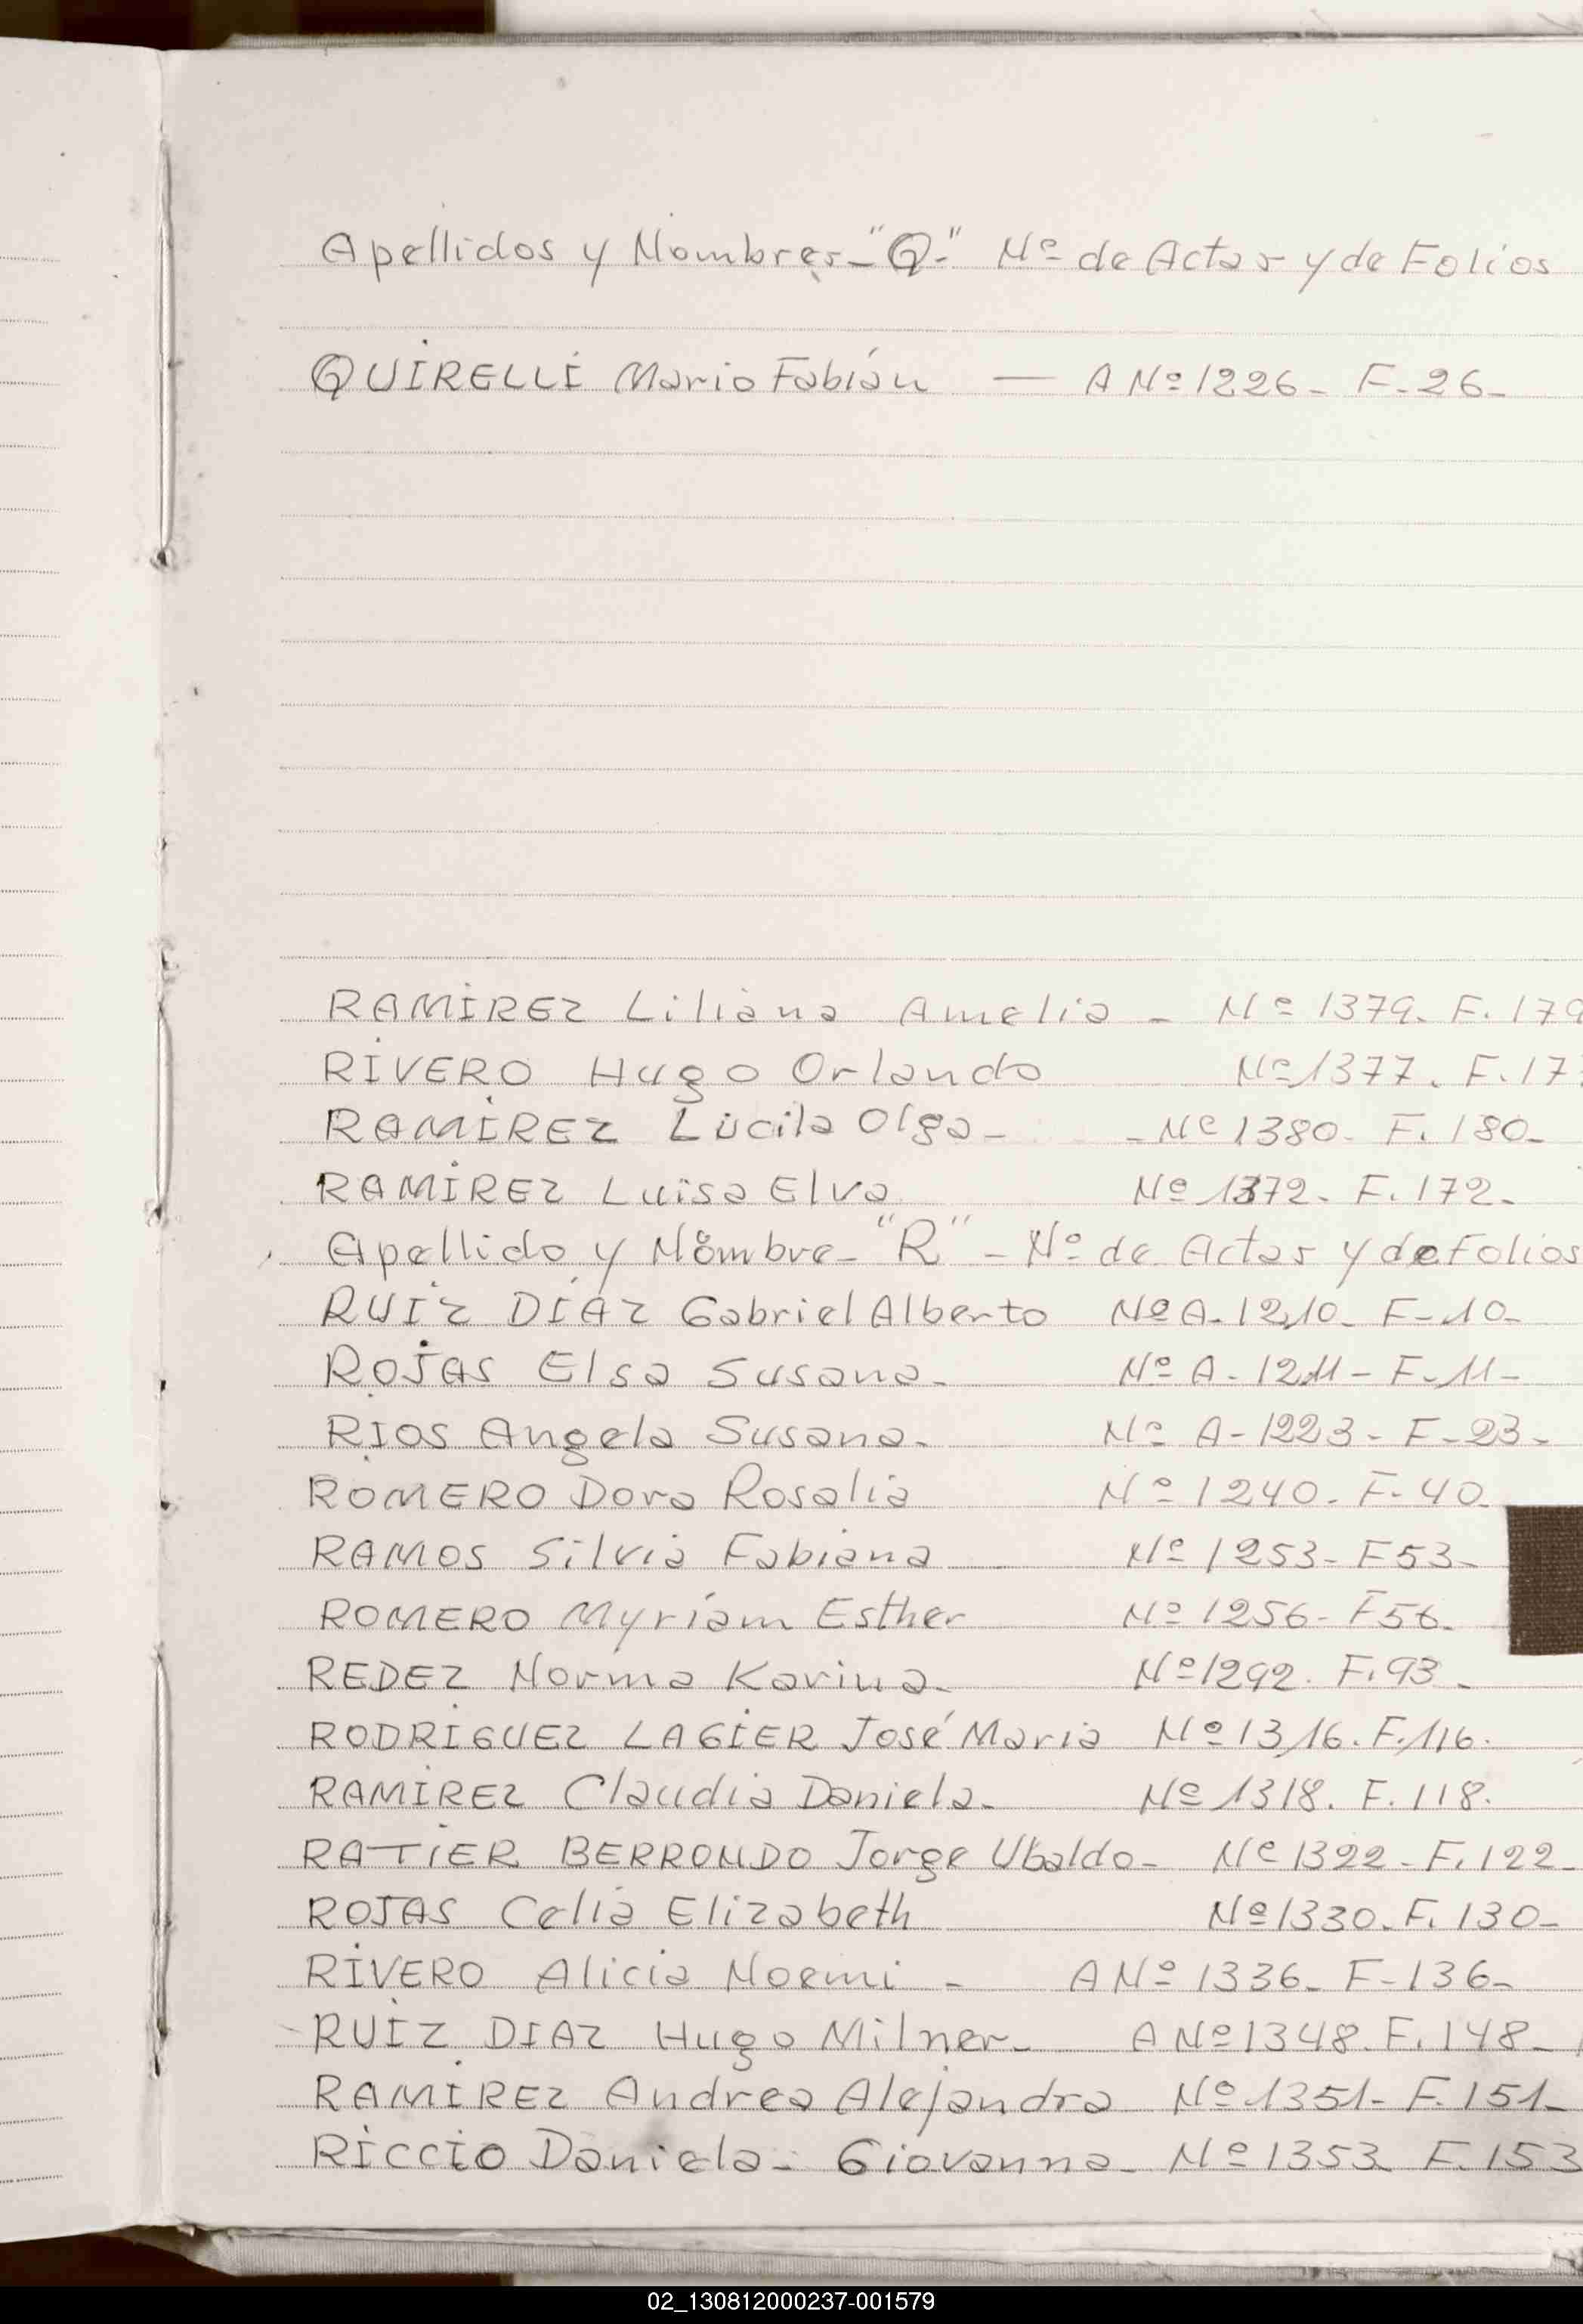 Apellidos y Nombres-"Q-" Nº de Actas y de Folios
QUIRELLI Mario Fabián — A Nº 1226- F-26-
RAMIREZ Liliana Amelia - Nº 1379. F. 179
RIVERO Hugo Orlando Nº 1377. F. 17
RAMIREZ Lucila Olga- - Nº 1380- F. 180-
RAMIREZ Luisa Elva Nº 1372- F. 172-
Apellido y Nombre-"R"- Nº de Actas y de Folios
RUIZ DIAZ Gabriel Alberto Nº A-1210- F-10-
ROJAS Elsa Susana- Nº A-1211- F-11-
RIOS Angela Susana- Nº A-1223- F-23-
ROMERO Dora Rosalia Nº 1240- F-40-
RAMOS Silvia Fabiana Nº 1253- F53-
ROMERO Myriam Esther Nº 1256- F56-
REDEZ Norma Karina- Nº 1292. F. 93-
RODRIGUEZ LAGIER José Maria Nº 1316. F. 116.
RAMIREZ Claudia Daniela- Nº 1318. F. 118.
RATIER BERRONDO Jorge Ubaldo- Nº 1322- F. 122-
ROJAS Celia Elizabeth Nº 1330- F. 130-
RIVERO Alicia Noemi - A Nº 1336- F-136-
RUIZ DIAZ Hugo Milner- A Nº 1348. F. 148-
RAMIREZ Andrea Alejandra Nº 1351- F. 151-
RICCIO Daniela- Giovanna- Nº 1353- F. 153
02_130812000237-001579